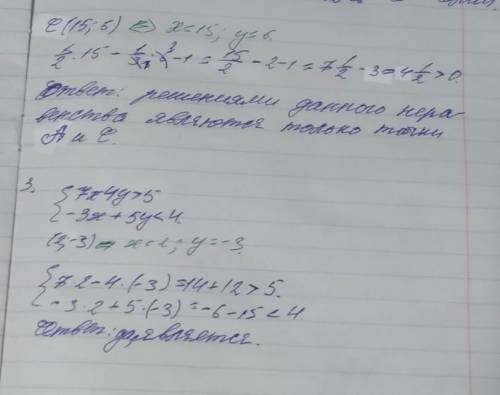 C(15; 6) ⇔ x=15; y=6.
1/2 · 15 − 1/3 · 6 − 1 = 15/2 − 2 − 1 = 7 1/2 − 3 = 4 1/2 > 0.
Ответ: решениями данного нера-
венства являются только точки
A и C.
3.
{7x 4y>5
−3x + 5y < 4.
(2,−3) x=2; y=−3.
{7 2 − 4 · (−3) = 14 + 12 > 5.
−3 · 2 + 5 · (−3) = −6 − 15 < 4
Ответ: да, является.